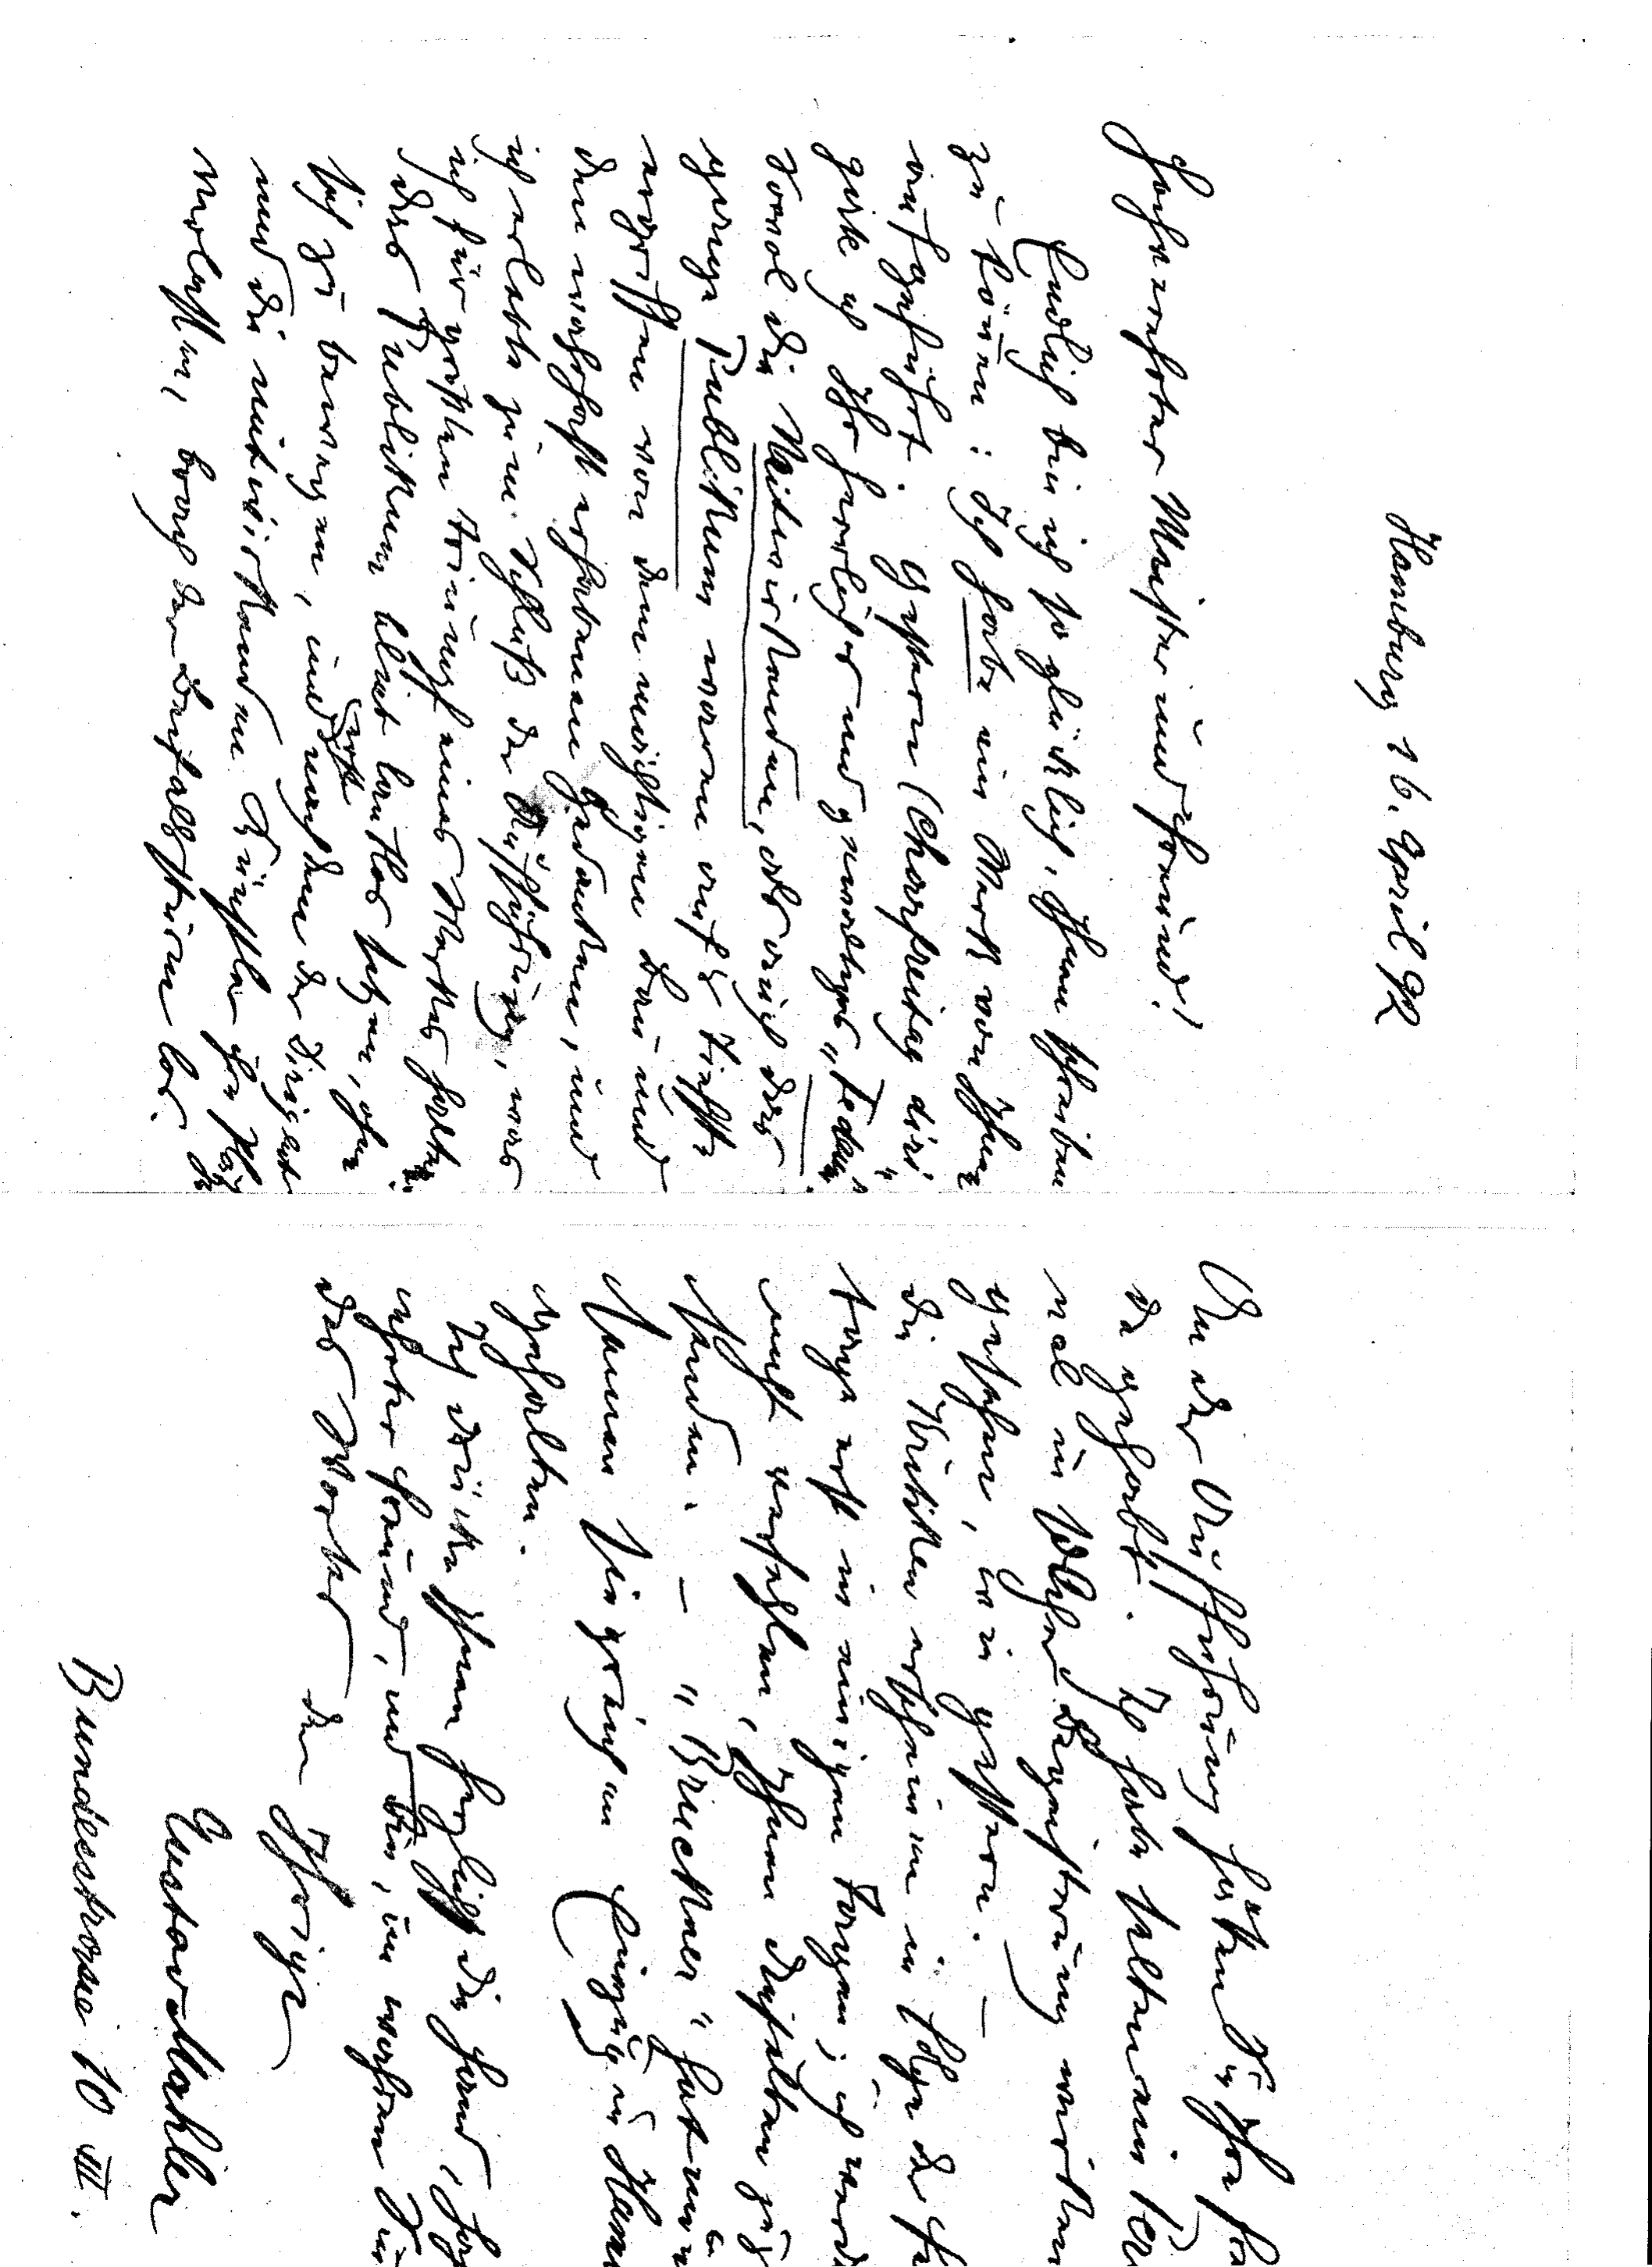 Hamburg 16. April 92
Hochverehrter Meister und Freund!
Endlich bin ich so glücklich, Ihnen schreiben
zu köñen: Ich habe ein Werk von Ihnen
aufgeführt. Gestern (Charfreitag diri-
girte ich Ihr herrliches und gewaltiges „Tedeum“.
Sowol die Mitwirkenden, als auch das
ganze Publikum waren auf's Tiefste
ergriffen von dem mächtigen Bau und
den wahrhaft erhabenen Gedanken, und
ich erlebte zum Schluß der Aufführung, was
ich für größten Triumph eines Werkes halte:
das Publikum blieb lautlos sitzen, ohne
sich zu bewegen, und erst nachdem der Dirigent
und die mitwirkenden Künstler ihre Plätze
verließen, brach der Beifallssturm los.
An der Aufführung hätten Sie Ihre
da gehabt. Ich habe selten ein
nal in solcher Begeisterung wirken
gesehen, wie gestern. —
Die Kritiken erscheinen in Folge der
tage erst in einigen Tagen; ich werde
nicht verfehlen, Ihnen dieselben zu
senden. — „Bruckner“ hat nun
seinen siegreichen Einzug in Ham
gehalten.
Ich drücke Ihnen herzlichst die Hand,
ehrter Freund, und bin, im wahren
des Wortes der Ihrige
Gustav Mahler
Bundesstrasse 10 III.